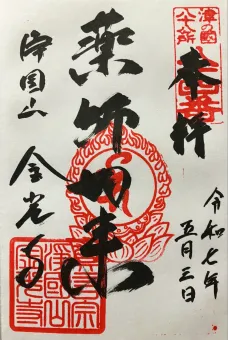 奉拝
津の国
八十八所
令和七年
五月三日
薬師如来
金光寺